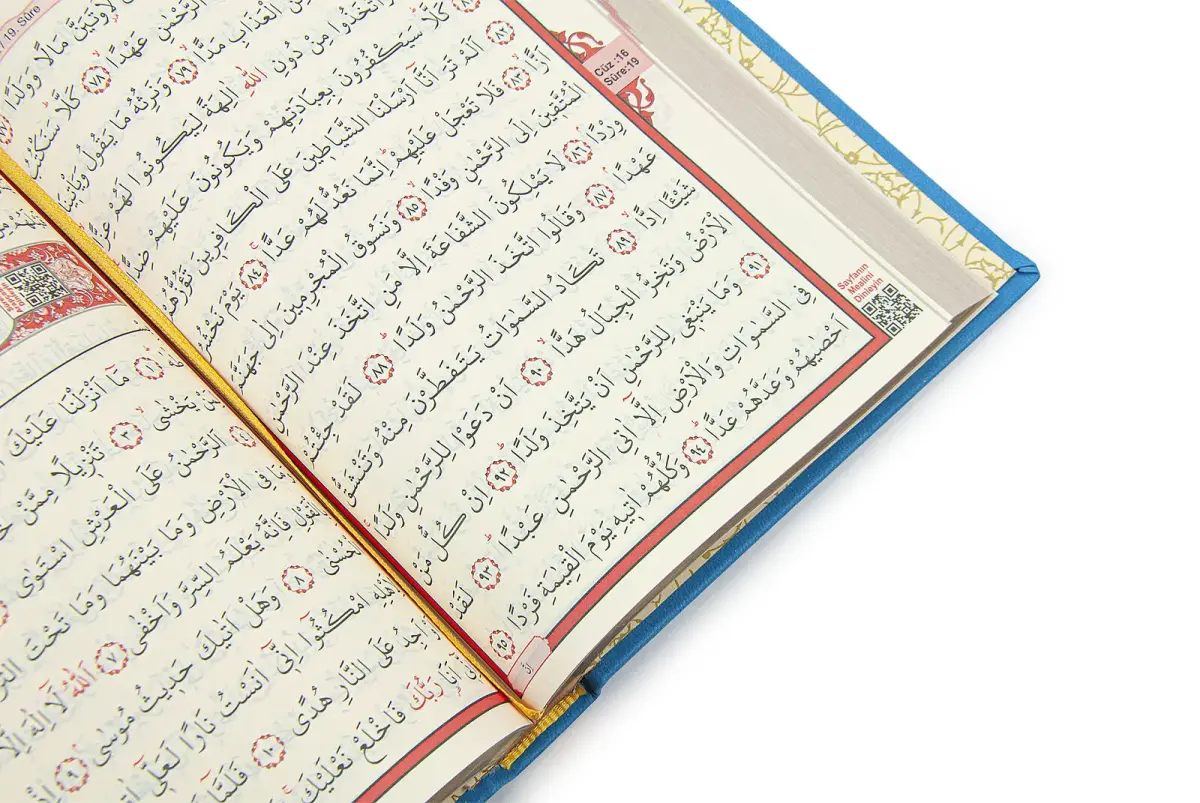 19. Sûre
Cüz :16
Sûre:19
مَالًا وَوَلَدًا ﴿٧٧﴾
الرَّحْمٰنِ عَهْدًا ﴿٧٨﴾ كَلَّا سَنَكْتُبُ
الْعَذَابِ مَدًّا ﴿٧٩﴾ وَنَرِثُهُ مَا يَقُولُ وَيَأْتِينَا
وَاتَّخَذُوا مِنْ دُونِ اللّٰهِ اٰلِهَةً لِيَكُونُوا لَهُمْ عِزًّا
كَلَّا سَيَكْفُرُونَ بِعِبَادَتِهِمْ وَيَكُونُونَ عَلَيْهِمْ ضِدًّا
﴿٨٢﴾ اَلَمْ تَرَ اَنَّٓا اَرْسَلْنَا الشَّيَاطِينَ عَلَى الْكَافِرِينَ تَؤُزُّهُمْ
اَزًّا ﴿٨٣﴾ فَلَا تَعْجَلْ عَلَيْهِمْ اِنَّمَا نَعُدُّ لَهُمْ عَدًّا ﴿٨٤﴾ يَوْمَ نَحْشُرُ
الْمُتَّقِينَ اِلَى الرَّحْمٰنِ وَفْدًا ﴿٨٥﴾ وَنَسُوقُ الْمُجْرِمِينَ اِلٰى جَهَنَّمَ
وِرْدًا ﴿٨٦﴾ لَا يَمْلِكُونَ الشَّفَاعَةَ اِلَّا مَنِ اتَّخَذَ عِنْدَ الرَّحْمٰنِ
عَهْدًا ﴿٨٧﴾ وَقَالُوا اتَّخَذَ الرَّحْمٰنُ وَلَدًا ﴿٨٨﴾ لَقَدْ جِئْتُمْ
شَيْـًٔا اِدًّا ﴿٨٩﴾ تَكَادُ السَّمٰوَاتُ يَتَفَطَّرْنَ مِنْهُ وَتَنْشَقُّ
الْاَرْضُ وَتَخِرُّ الْجِبَالُ هَدًّا ﴿٩٠﴾ اَنْ دَعَوْا لِلرَّحْمٰنِ وَلَدًا
﴿٩١﴾ وَمَا يَنْبَغِي لِلرَّحْمٰنِ اَنْ يَتَّخِذَ وَلَدًا ﴿٩٢﴾ اِنْ كُلُّ مَنْ
فِي السَّمٰوَاتِ وَالْاَرْضِ اِلَّٓا اٰتِي الرَّحْمٰنِ عَبْدًا ﴿٩٣﴾ لَقَدْ
اَحْصٰيهُمْ وَعَدَّهُمْ عَدًّا ﴿٩٤﴾ وَكُلُّهُمْ اٰتِيهِ يَوْمَ الْقِيٰمَةِ فَرْدًا ﴿٩٥﴾
Sayfanın
Mealini
Dinleyin
﴿١﴾ مَٓا اَنْزَلْنَا عَلَيْكَ
يَخْشٰى ﴿٣﴾ تَنْزِيلًا مِمَّنْ
﴿٤﴾ اَلرَّحْمٰنُ عَلَى الْعَرْشِ اسْتَوٰى
وَمَا فِي الْاَرْضِ وَمَا بَيْنَهُمَا وَمَا تَحْتَ
فَاِنَّهُ يَعْلَمُ السِّرَّ وَاَخْفٰى ﴿٧﴾ اَللّٰهُ لَٓا اِلٰهَ اِلَّا
الْحُسْنٰى ﴿٨﴾ وَهَلْ اَتٰيكَ حَدِيثُ مُوسٰى ﴿٩﴾
لِاَهْلِهِ امْكُثُٓوا اِنِّٓي اٰنَسْتُ نَارًا لَعَلِّٓي
عَلَى النَّارِ هُدًى ﴿١٠﴾ فَلَمَّٓا
اَنَا۬ رَبُّكَ فَاخْلَعْ نَعْلَيْكَ